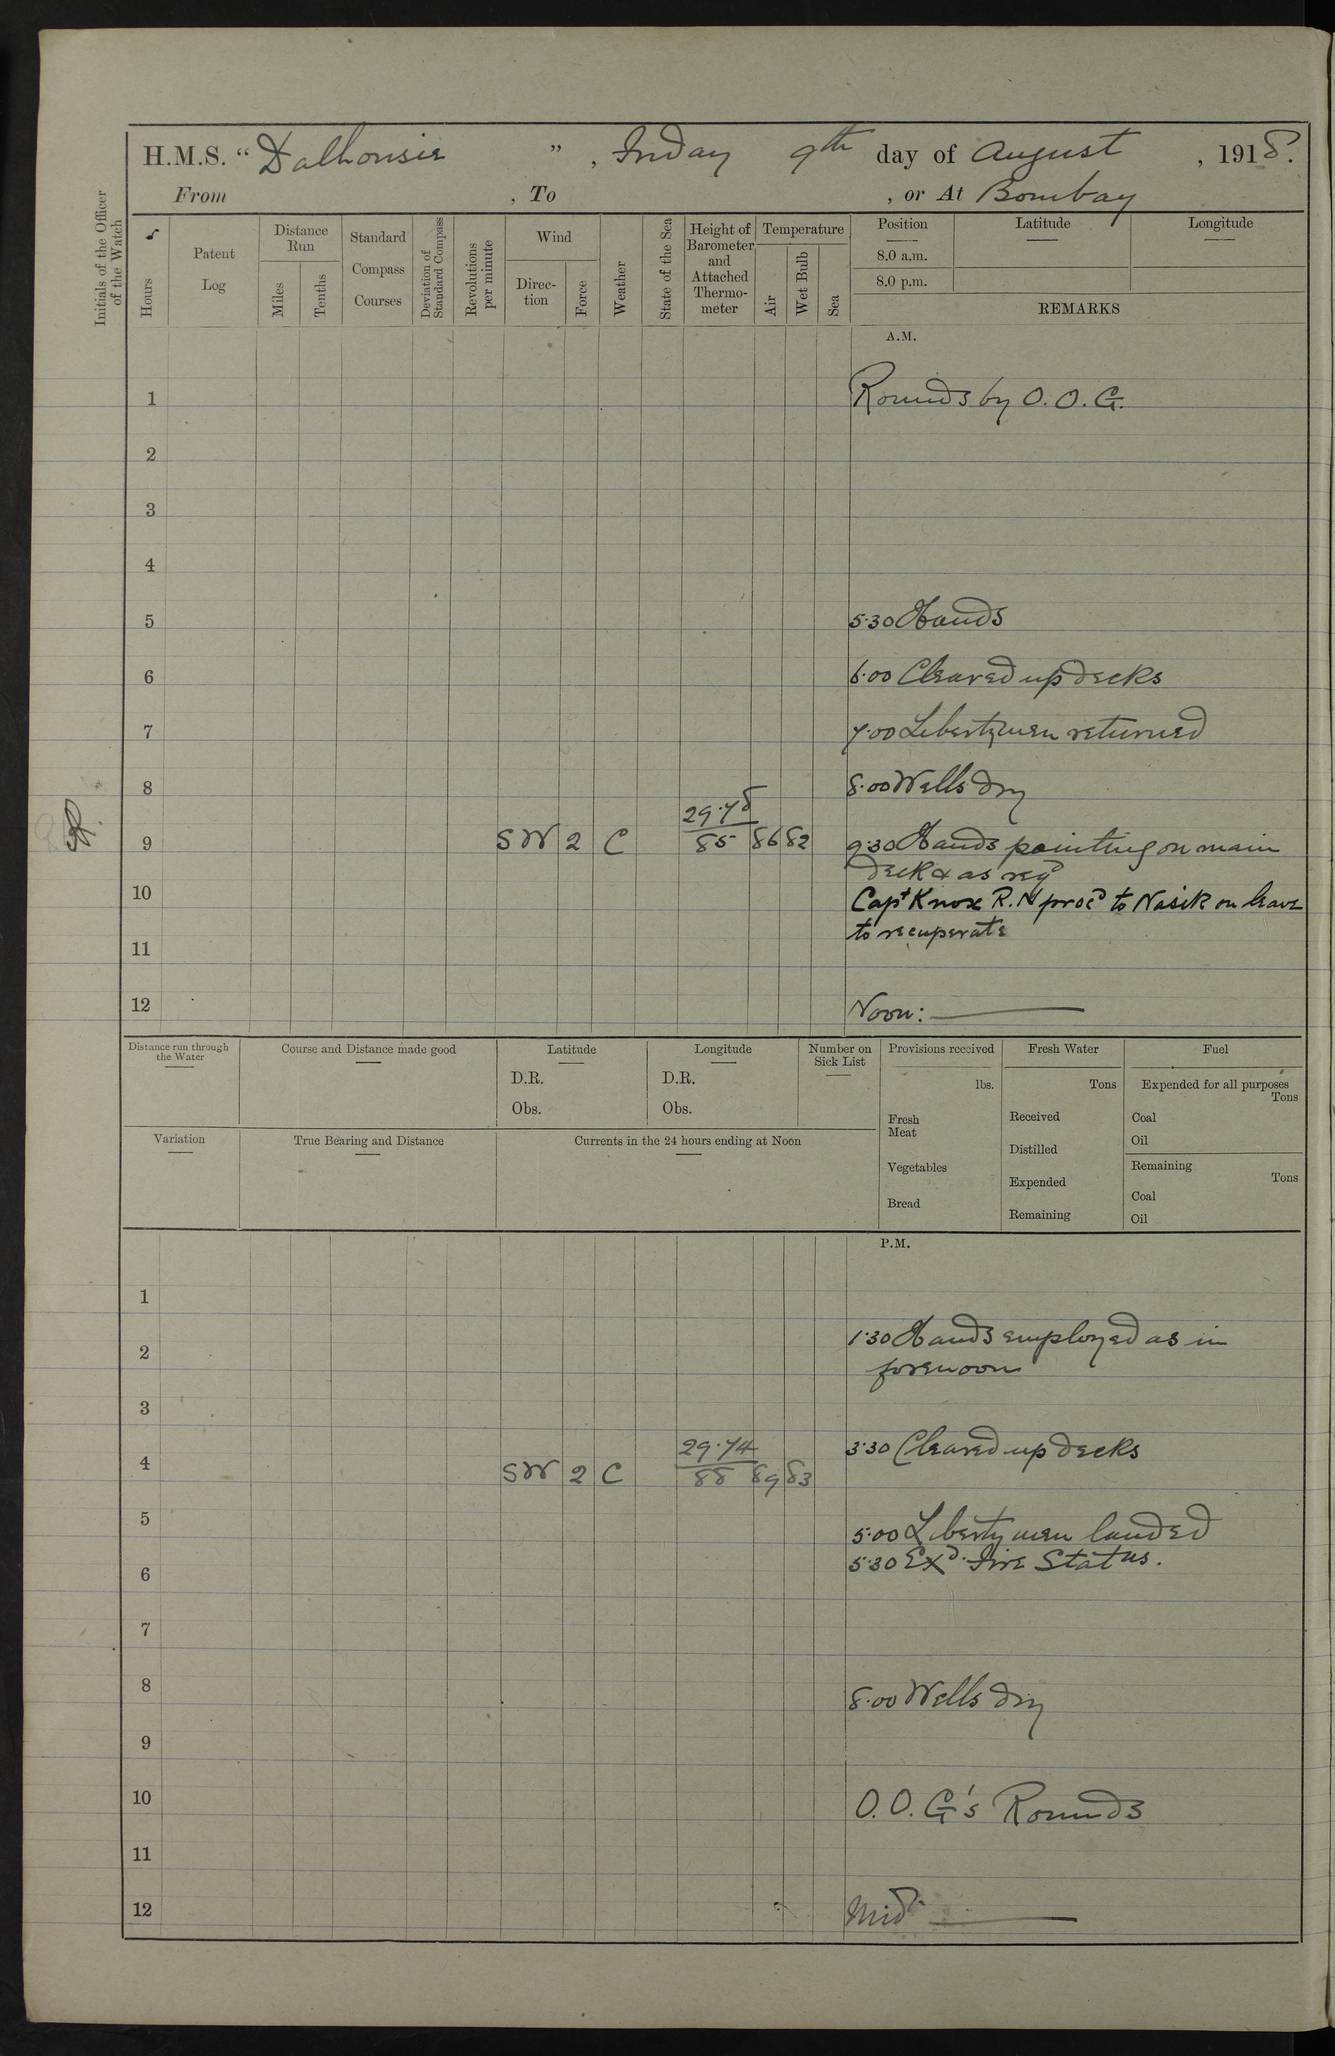 H.M.S. “Dalhousie”, Friday 9th day of August, 1918.
From , To , or At Bombay
Initials of the Officer of the Watch
Hours
Patent Log
Distance Run
Miles
Tenths
Standard Compass Courses
Deviation of Standard Compass
Revolutions per minute
Wind
Direc-tion
Force
Weather
State of the Sea
Height of Barometer and Attached Thermo-meter
Temperature
Air
Wet Bulb
Sea
Position
Latitude
Longitude
8.0 a.m.
8.0 p.m.
REMARKS
A.M.
1 Rounds by O.O.G.
2
3
4
5 5.30 Hands
6 6.00 Cleared up decks
7 7.00 Libertymen returned
8 8.00 Wells dry
29.78
9 SW 2 C 85 86 82 9.30 Hands painting on main
deck & as reqd
10 Capt Knox R.N procd to Nasik on leave
to recuperate
11
12 Noon:
Distance run through the Water
Course and Distance made good
Latitude
D.R.
Obs.
Longitude
D.R.
Obs.
Number on Sick List
Provisions received
lbs.
Fresh Meat
Vegetables
Bread
Fresh Water
Tons
Received
Distilled
Expended
Remaining
Fuel
Expended for all purposes
Tons
Coal
Oil
Remaining
Tons
Coal
Oil
Variation
True Bearing and Distance
Currents in the 24 hours ending at Noon
P.M.
1
1.30 Hands employed as in
2 forenoon
3
29.74 3.30 Cleared up decks
4 SW 2 C 88 89 83
5 5.00 Liberty men landed
5.30 Exd. Fire Status.
6
7
8 8.00 Wells dry
9
10 O.O.G's Rounds
11
12 Midt